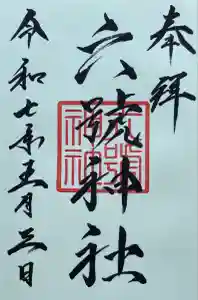 奉拝
六號神社
令和七年五月三日